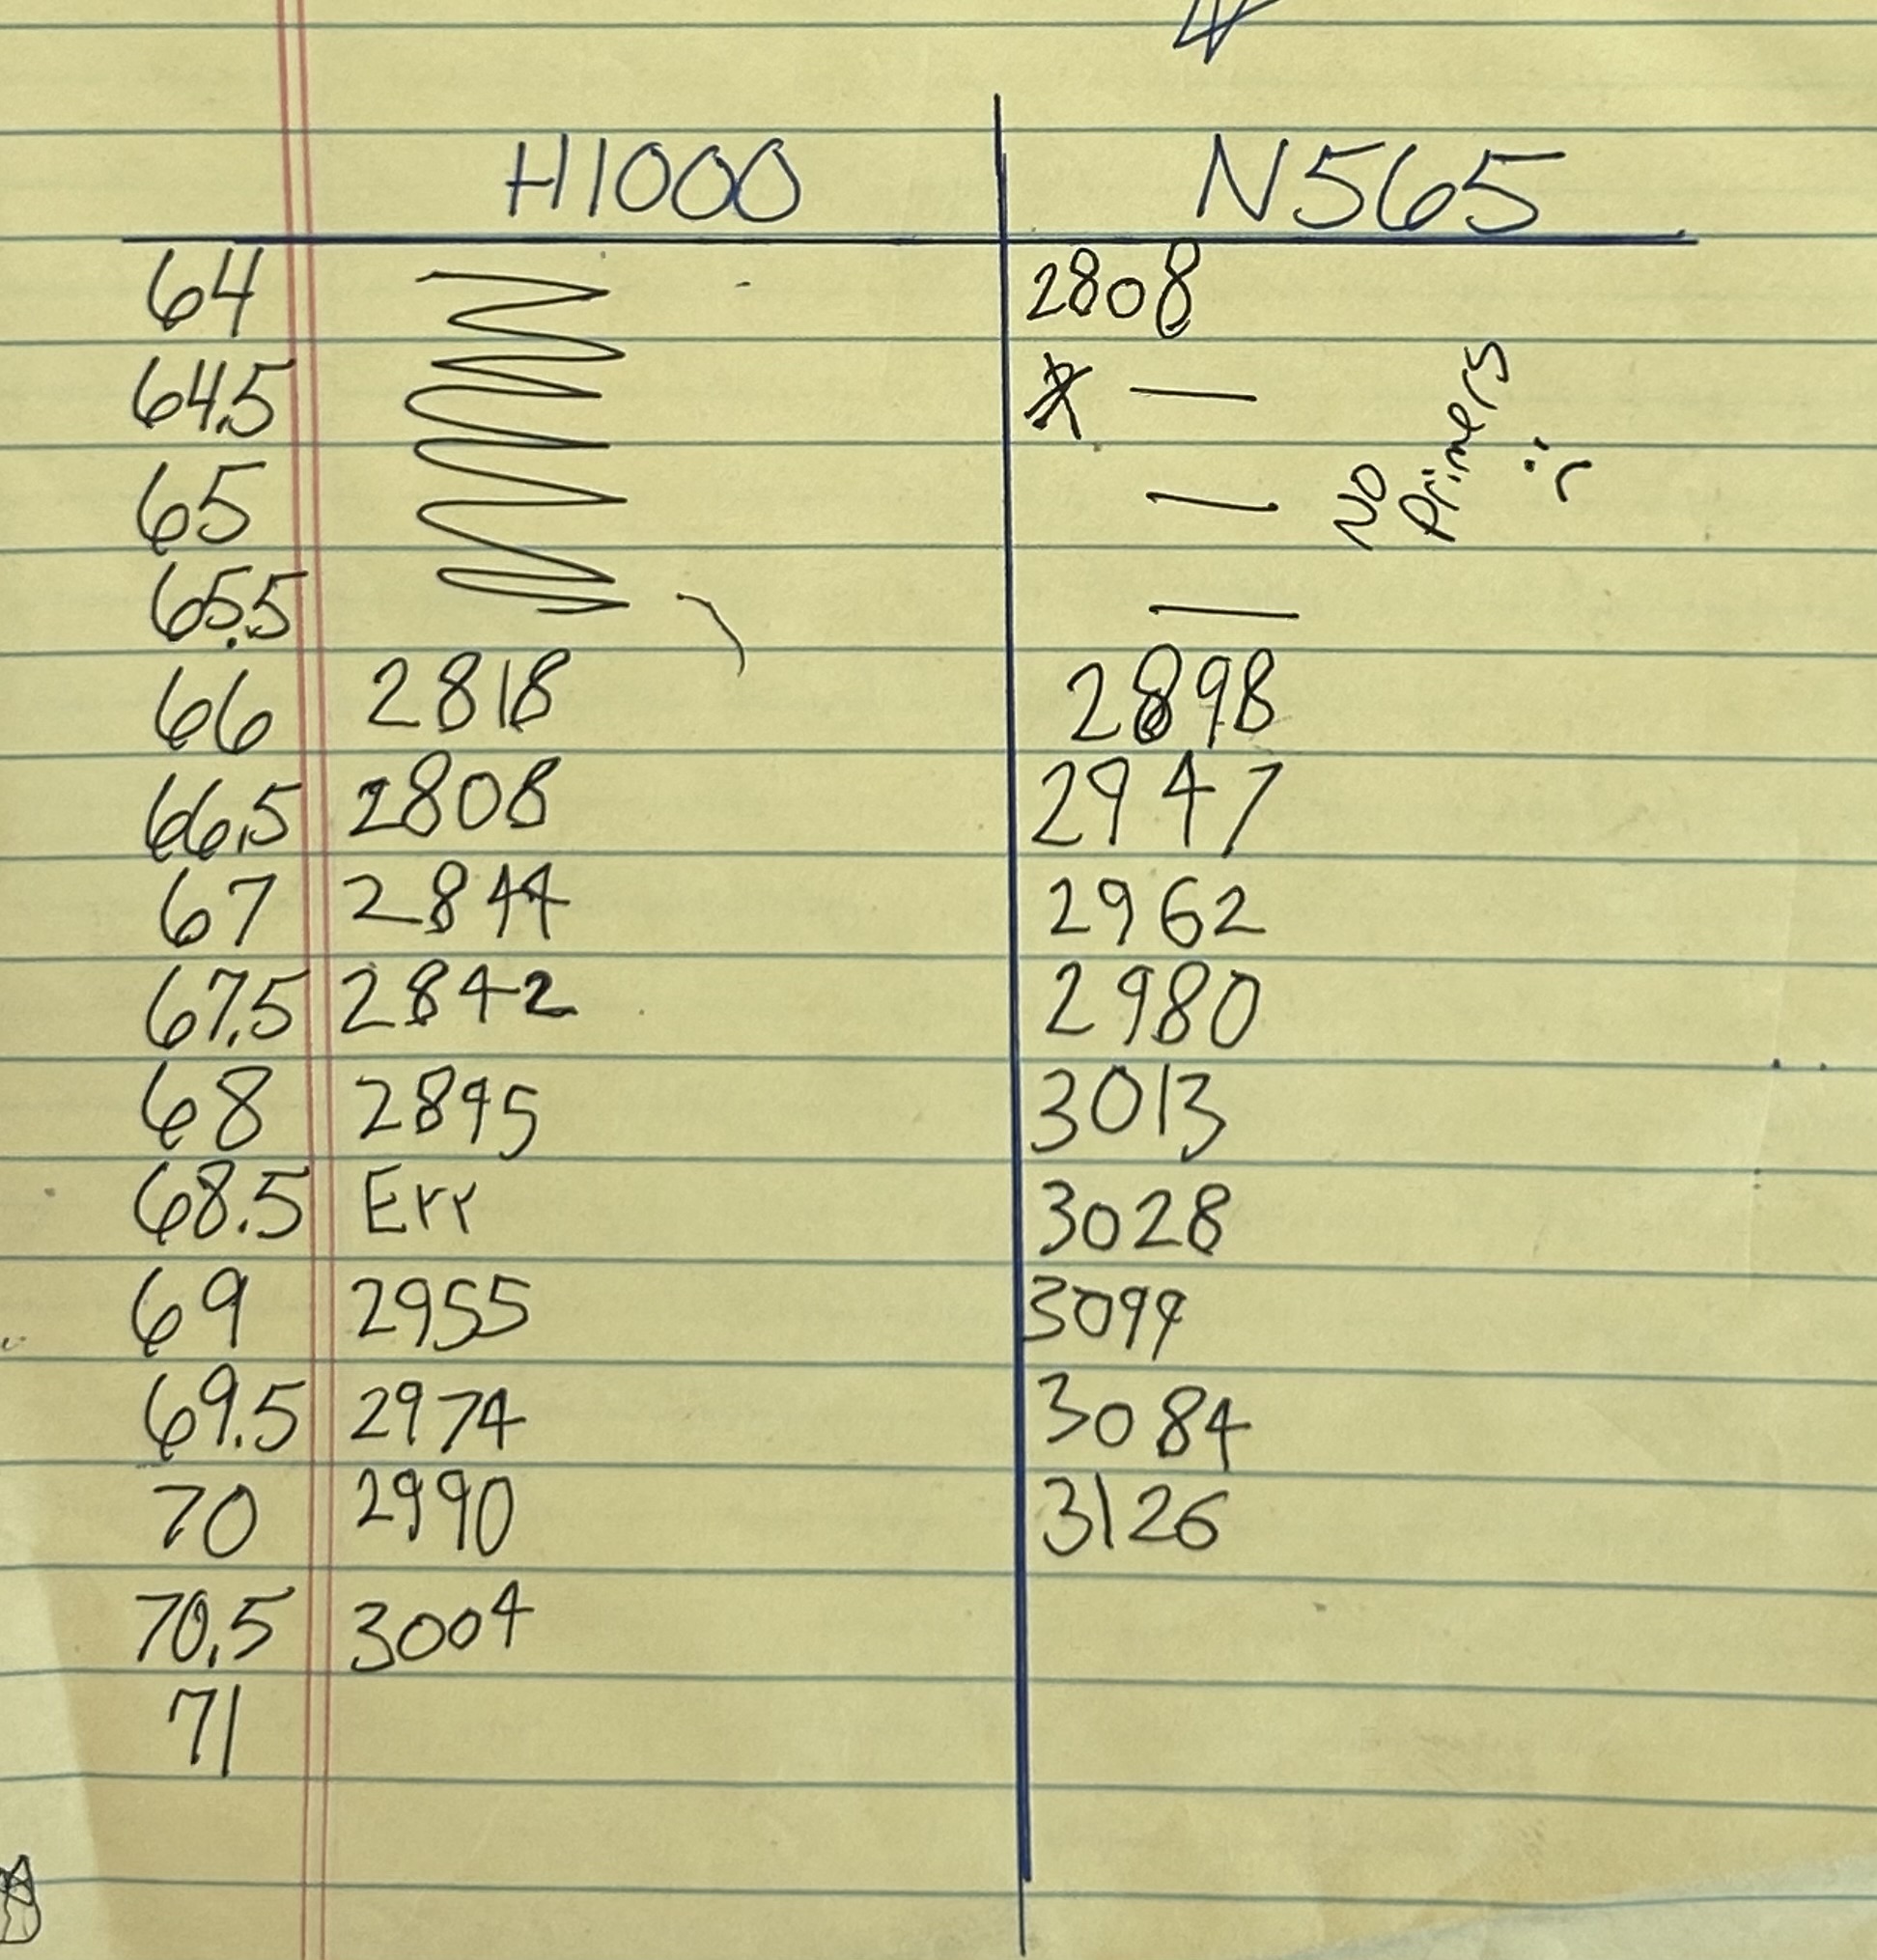 H1000 N565
64 2808
64.5 —
65 — No Primers :(
65.5 —
66 2818 2898
66.5 2808 2947
67 2844 2962
67.5 2842 2980
68 2895 3013
68.5 Err 3028
69 2955 3099
69.5 2974 3084
70 2990 3126
70.5 3004
71